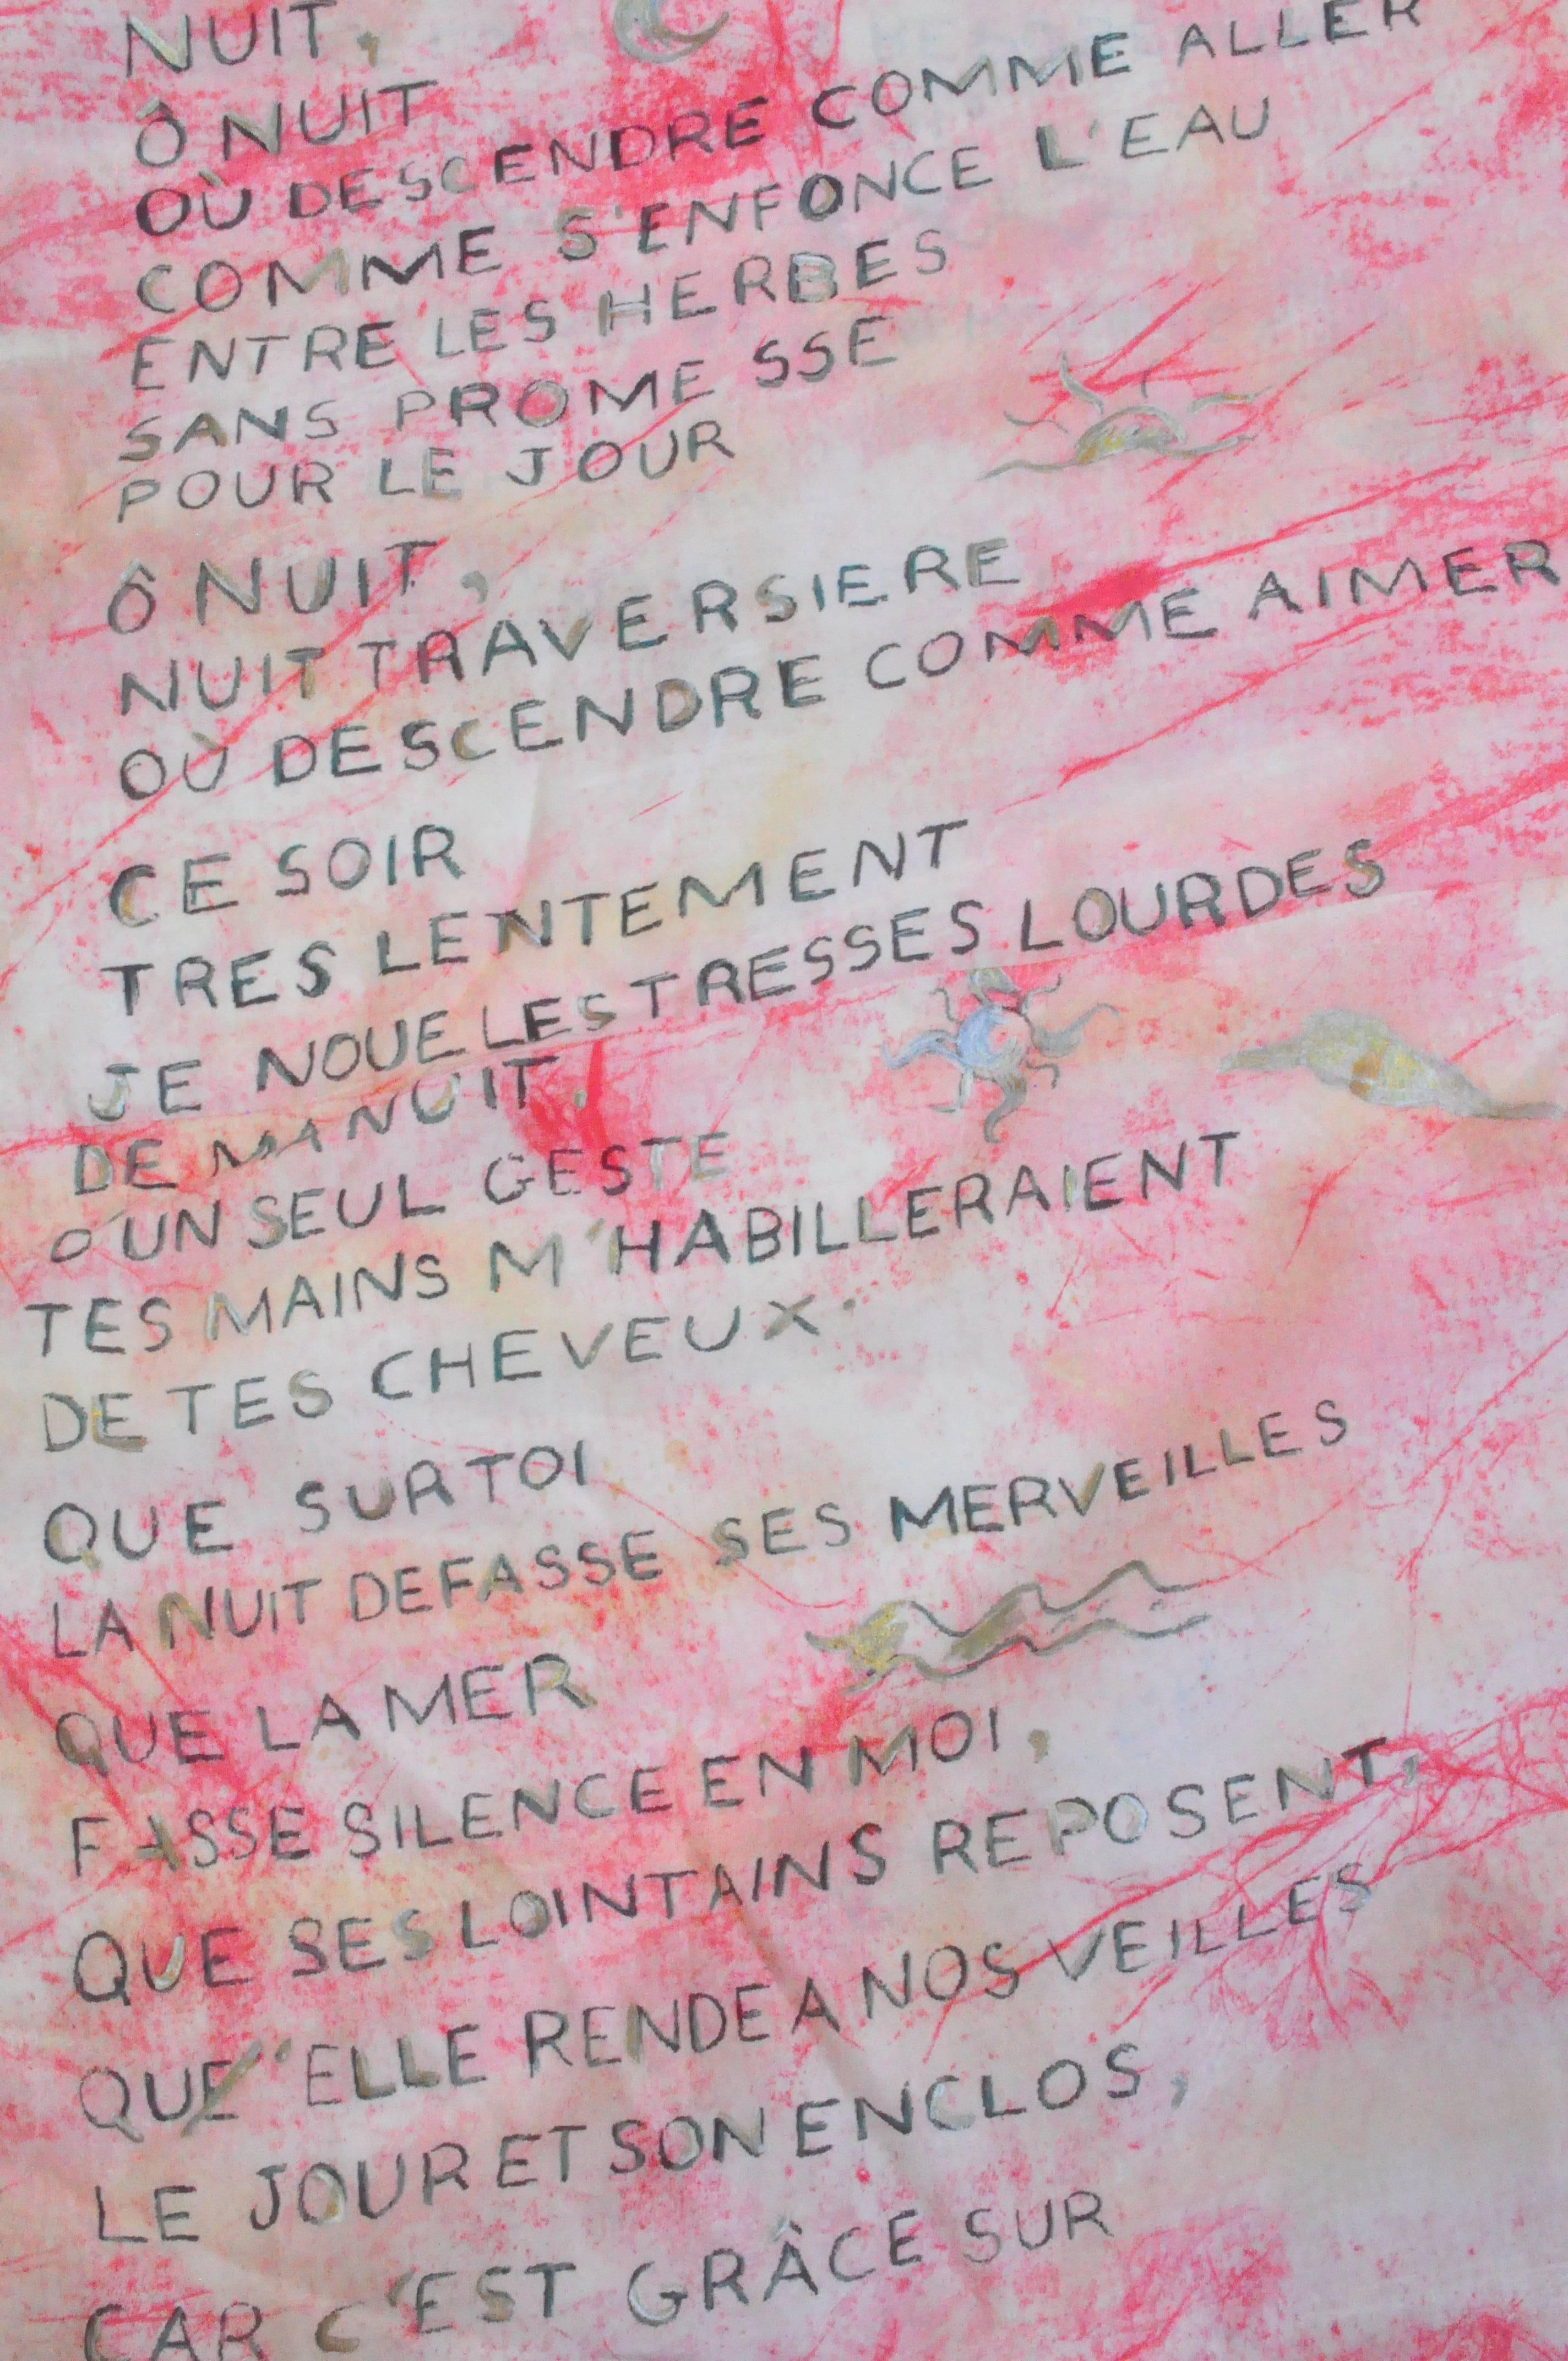 NUIT,
Ô NUIT
OÙ DESCENDRE COMME ALLER
COMME S'ENFONCE L'EAU
ENTRE LES HERBES
SANS PROMESSE
POUR LE JOUR
Ô NUIT,
NUIT TRAVERSIERE
OÙ DESCENDRE COMME AIMER
CE SOIR
TRES LENTEMENT
JE NOUE LES TRESSES LOURDES
DE MA NUIT.
D'UN SEUL GESTE
TES MAINS M'HABILLERAIENT
DE TES CHEVEUX.
QUE SUR TOI
LA NUIT DEFASSE SES MERVEILLES
QUE LA MER
FASSE SILENCE EN MOI,
QUE SES LOINTAINS REPOSENT,
QU'ELLE RENDE A NOS VEILLES
LE JOUR ET SON ENCLOS,
CAR C'EST GRÂCE SUR